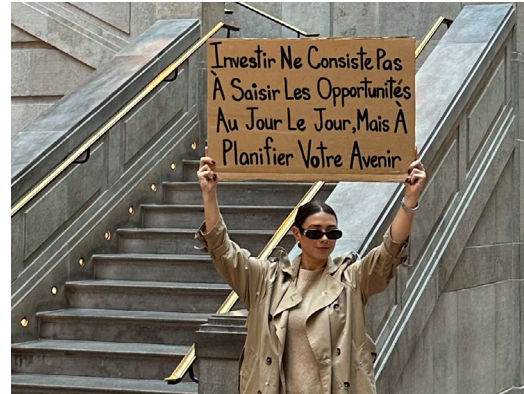 Investir Ne Consiste Pas
À Saisir Les Opportunités
Au Jour Le Jour, Mais À
Planifier Votre Avenir